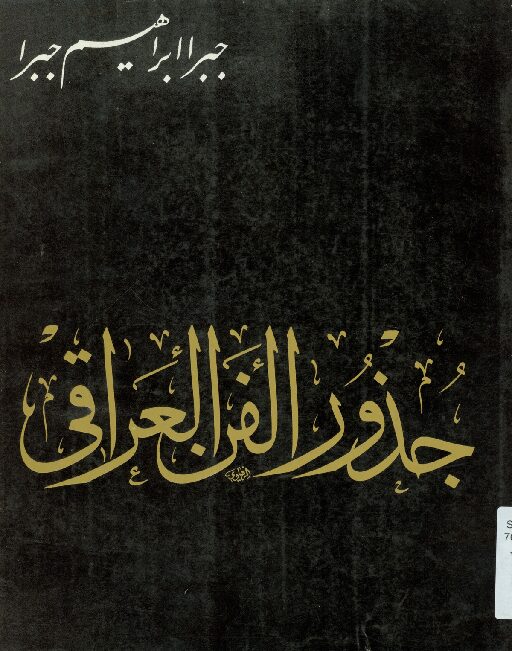 جبرا ابراهيم جبرا
جُذُور الفن العراقي
S